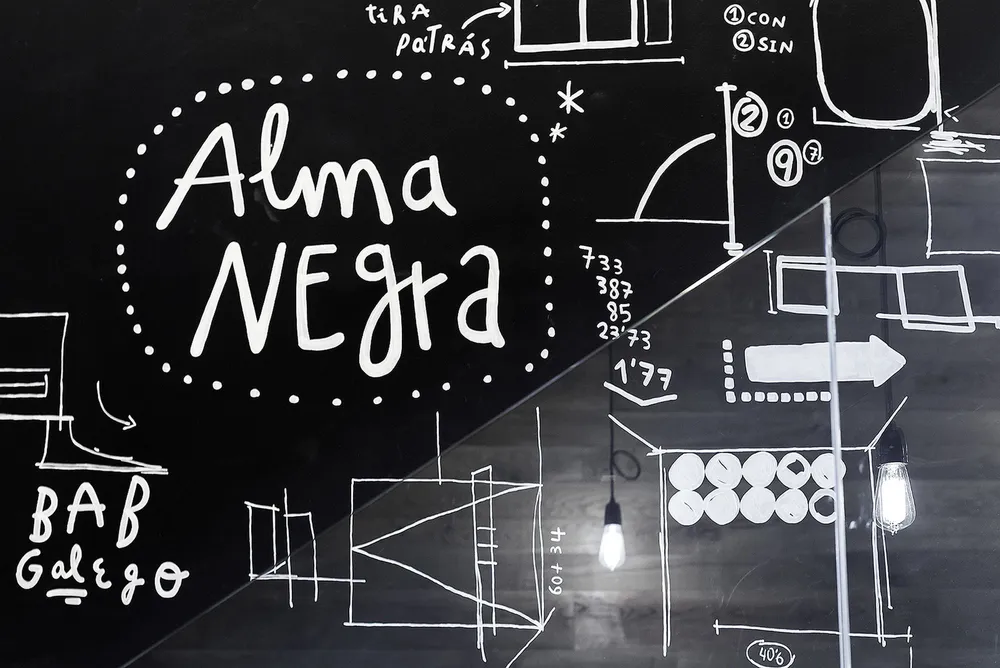 tiRA
PATRÁS
① CON
② SIN
Alma
NEgra
② ①
⑨ ⑦
733
387
85
23'73
1'77
BAB
GalEgo
60+34
40'6